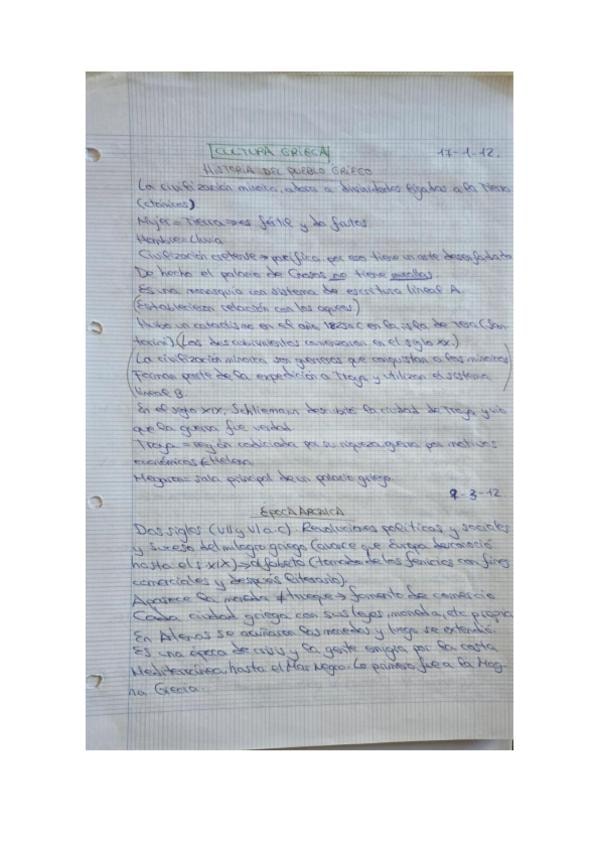 CULTURA GRIEGA 17-1-12.
HISTORIA DEL PUEBLO GRIEGO
La civilización minoica, adora a divinidades ligadas a la Tierra
(ctónicas)
Mujer = Tierra → es fértil y da frutos.
Hombre = Lluvia
Civilización cretense → pacífica por eso tiene un arte desenfadado
De hecho el palacio de Cnosos no tiene murallas.
Es una monarquía con sistema de escritura lineal A.
(Establecieron relación con los aqueos)
Hubo un cataclismo en el año a.C en la isla de Tera (San-
torini). (Los descubrimientos comenzaron en el siglo XX)
La civilización son guerreros que conquistan a los minoicos
Forman parte de la expedición a Troya y utilizan el sistema
lineal B.
En el siglo XIX, Schliemann descubrió la ciudad de Troya y vio
que la guerra fue verdad.
Troya = región codiciada por su riqueza guerra por motivos
económicos ≠ Helena
Megaron = sala principal de un palacio griego.
9-3-12
ÉPOCA ARCAICA
Dos siglos (VII y VI a.C). Revoluciones políticas y sociales
y suceso del milagro griego (avance que Europa
hasta el s.XIX) → alfabeto (tomado de los fenicios con fines
comerciales y después literario).
Aparece la moneda ≠ trueque → fomento de comercio
Cada ciudad griega con sus leyes, moneda, etc propia
En Atenas se acuñaron las monedas y luego se extendió.
Es una época de crisis y la gente emigra por la costa
Mediterránea hasta el Mar Negro. Lo primero fue a la Mag-
na Grecia.